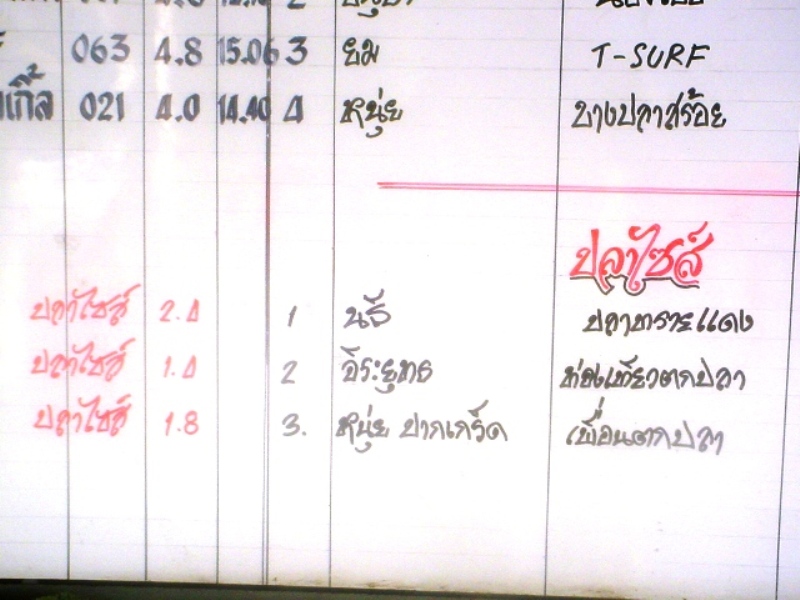 063 4.8 15.06 3 ยม T-SURF
021 4.0 14.40 4 หนุ่ย บางปลาสร้อย
ปลาไซส์
ปลาไซส์ 2.4 1 นรี ปลาทรายแดง
ปลาไซส์ 1.4 2 จิระยุทธ ท่องเที่ยวตกปลา
ปลาไซส์ 1.8 3. หนุ่ย ปากเกร็ด เพื่อนตกปลา